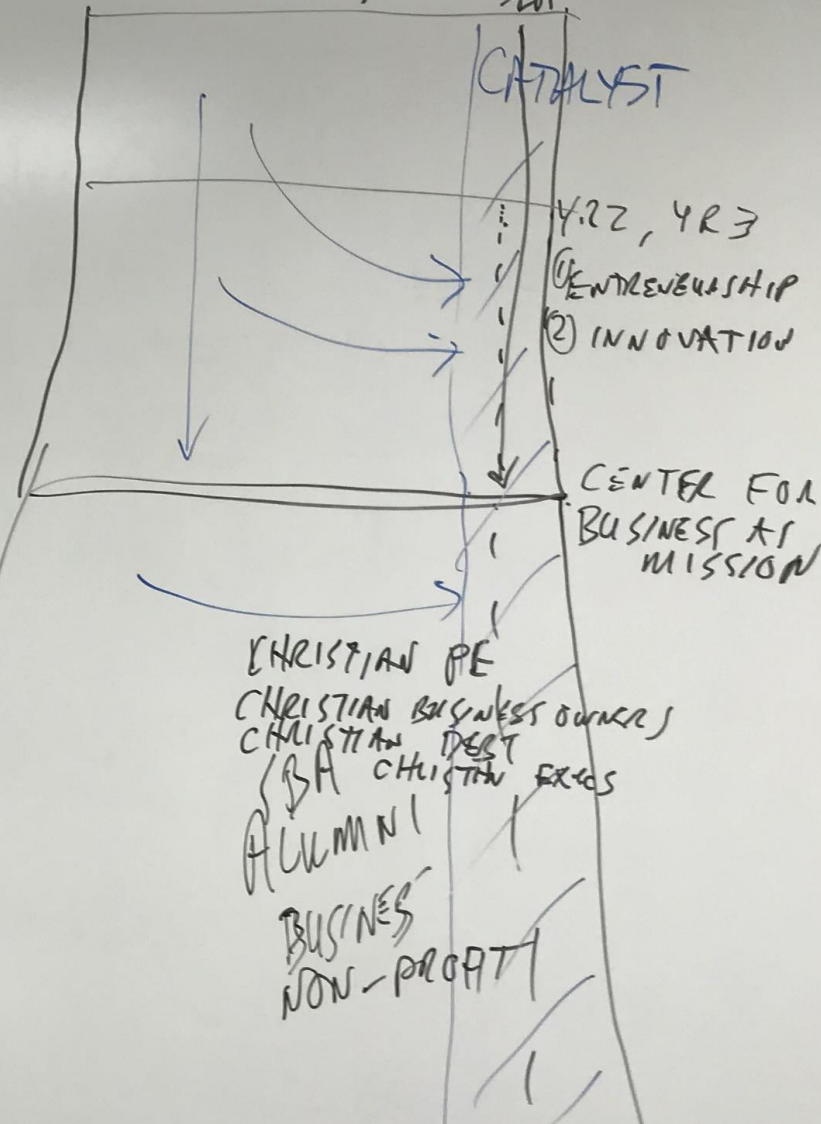 CATALYST
YR2, YR3
① ENTRENEURSHIP
② INNOVATION
CENTER FOR
BUSINESS AS
MISSION
CHRISTIAN PE
CHRISTIAN BUSINESS OWNERS
CHRISTIAN DEBT
SBA CHRISTIAN EXECS
ALUMNI
BUSINES
NON-PROFIT